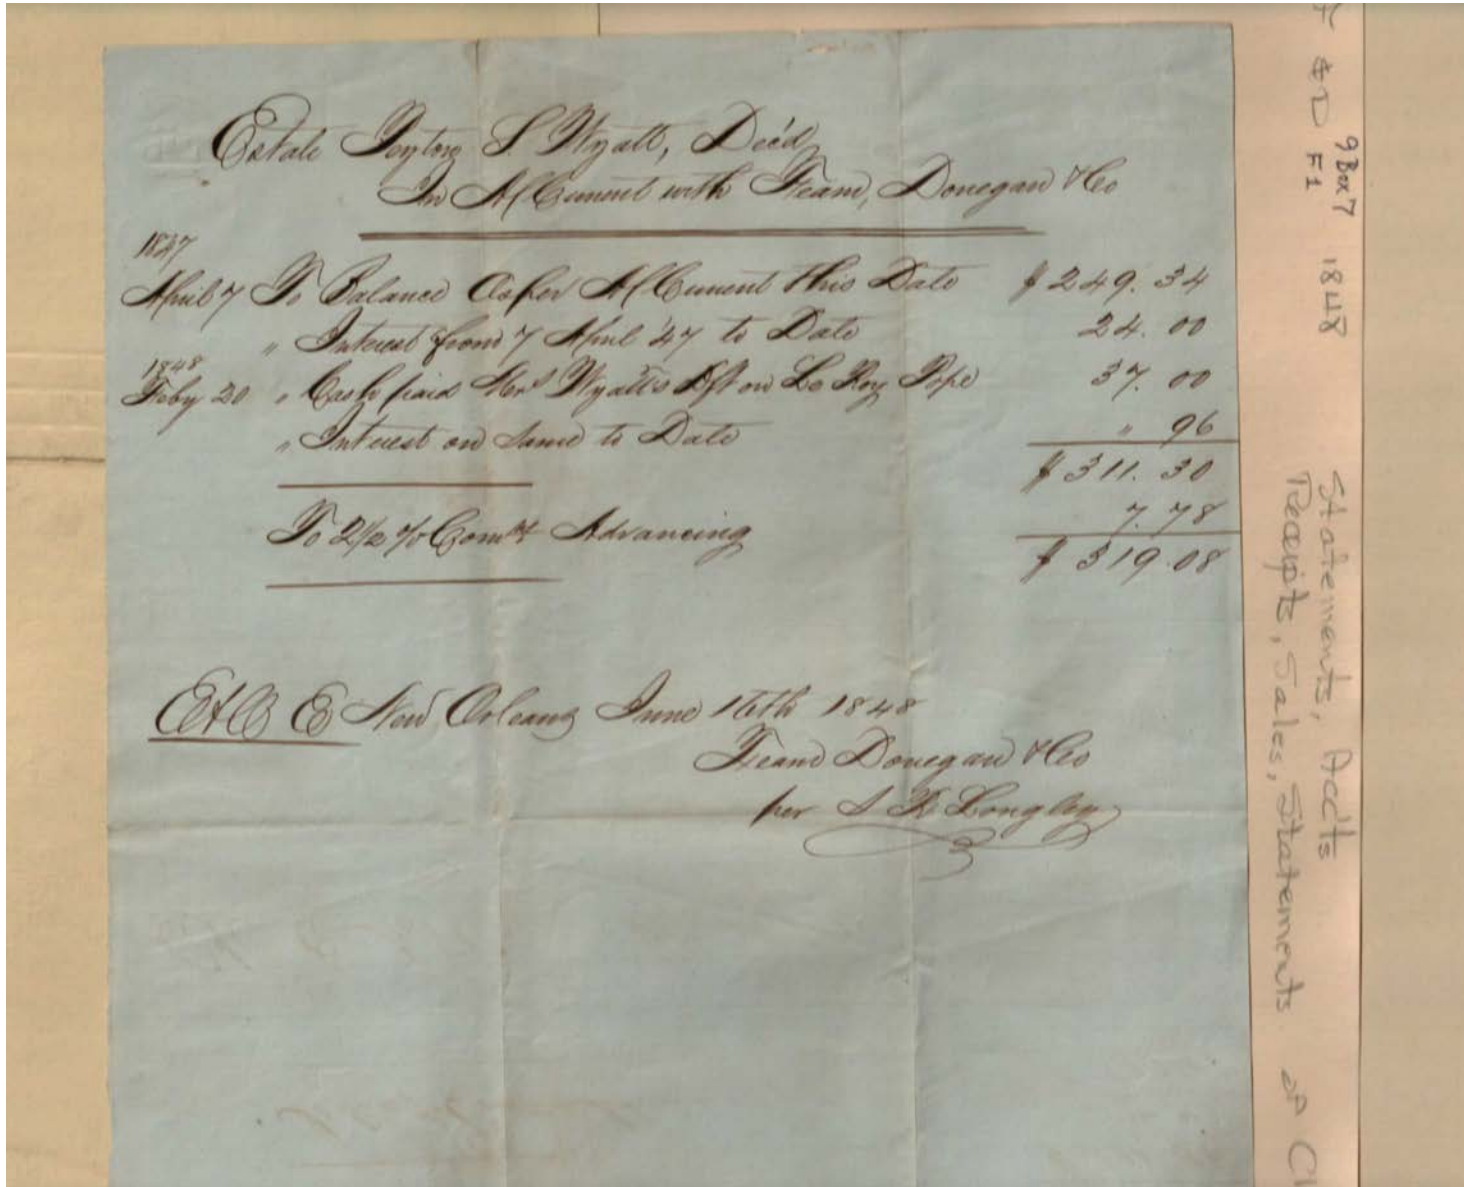 Estate Peyton S. Wyatt, Dec'd
In A/Current with Fearn, Donegan & Co
1847
April 7 To Balance As per A/Current this Date $ 249. 34
" Interest from 7 April '47 to Date 24. 00
1848
Feby 20 " Cash paid Mrs Wyatt's Dft on Le Roy Pope 37. 00
" Interest on Same to Date " 96
$ 311. 30
To 2 1/2 % Comn Advancing 7. 78
$ 319.08
E & O E New Orleans June 16th 1848
Fearn Donegan & Co
per S Longley
F & D
9 Box 7
F1
1848
Statements, Acc'ts
Receipts, Sales, Statements of